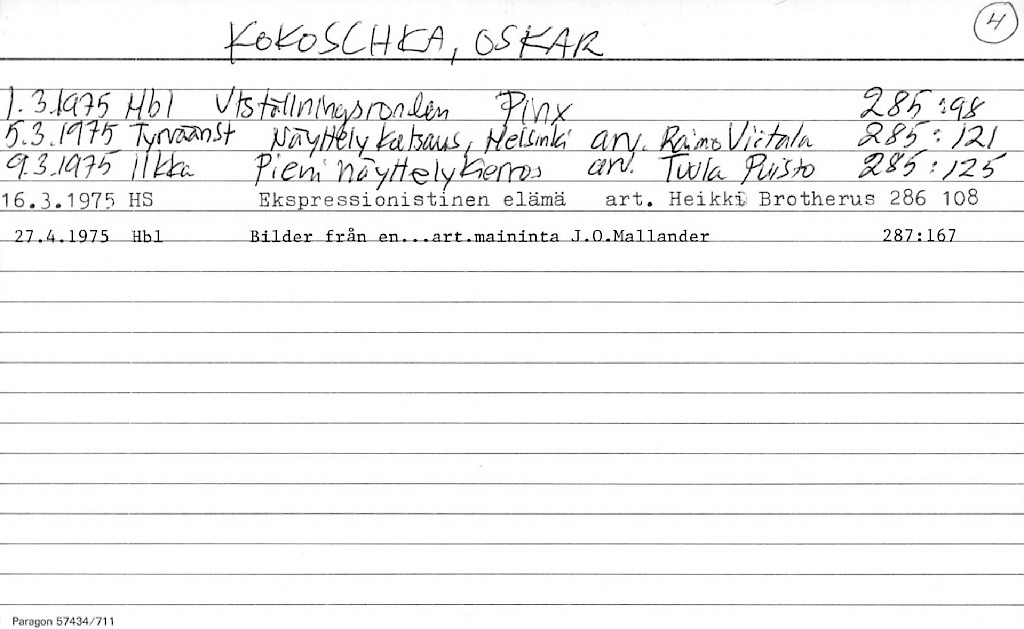 KOKOSCHKA, OSKAR 4
1.3.1975 Hbl Utställningsronden Pinx 285:98
5.3.1975 Tyrväänst Näyttelykatsaus, Helsinki arv. Raimo Viitala 285:121
9.3.1975 Ilkka Pieni näyttelykierros arv. Tuula Puisto 285:125
16.3.1975 HS Ekspressionistinen elämä art. Heikki Brotherus 286 108
27.4.1975 Hbl Bilder från en...art.maininta J.O.Mallander 287:167
Paragon 57434/711